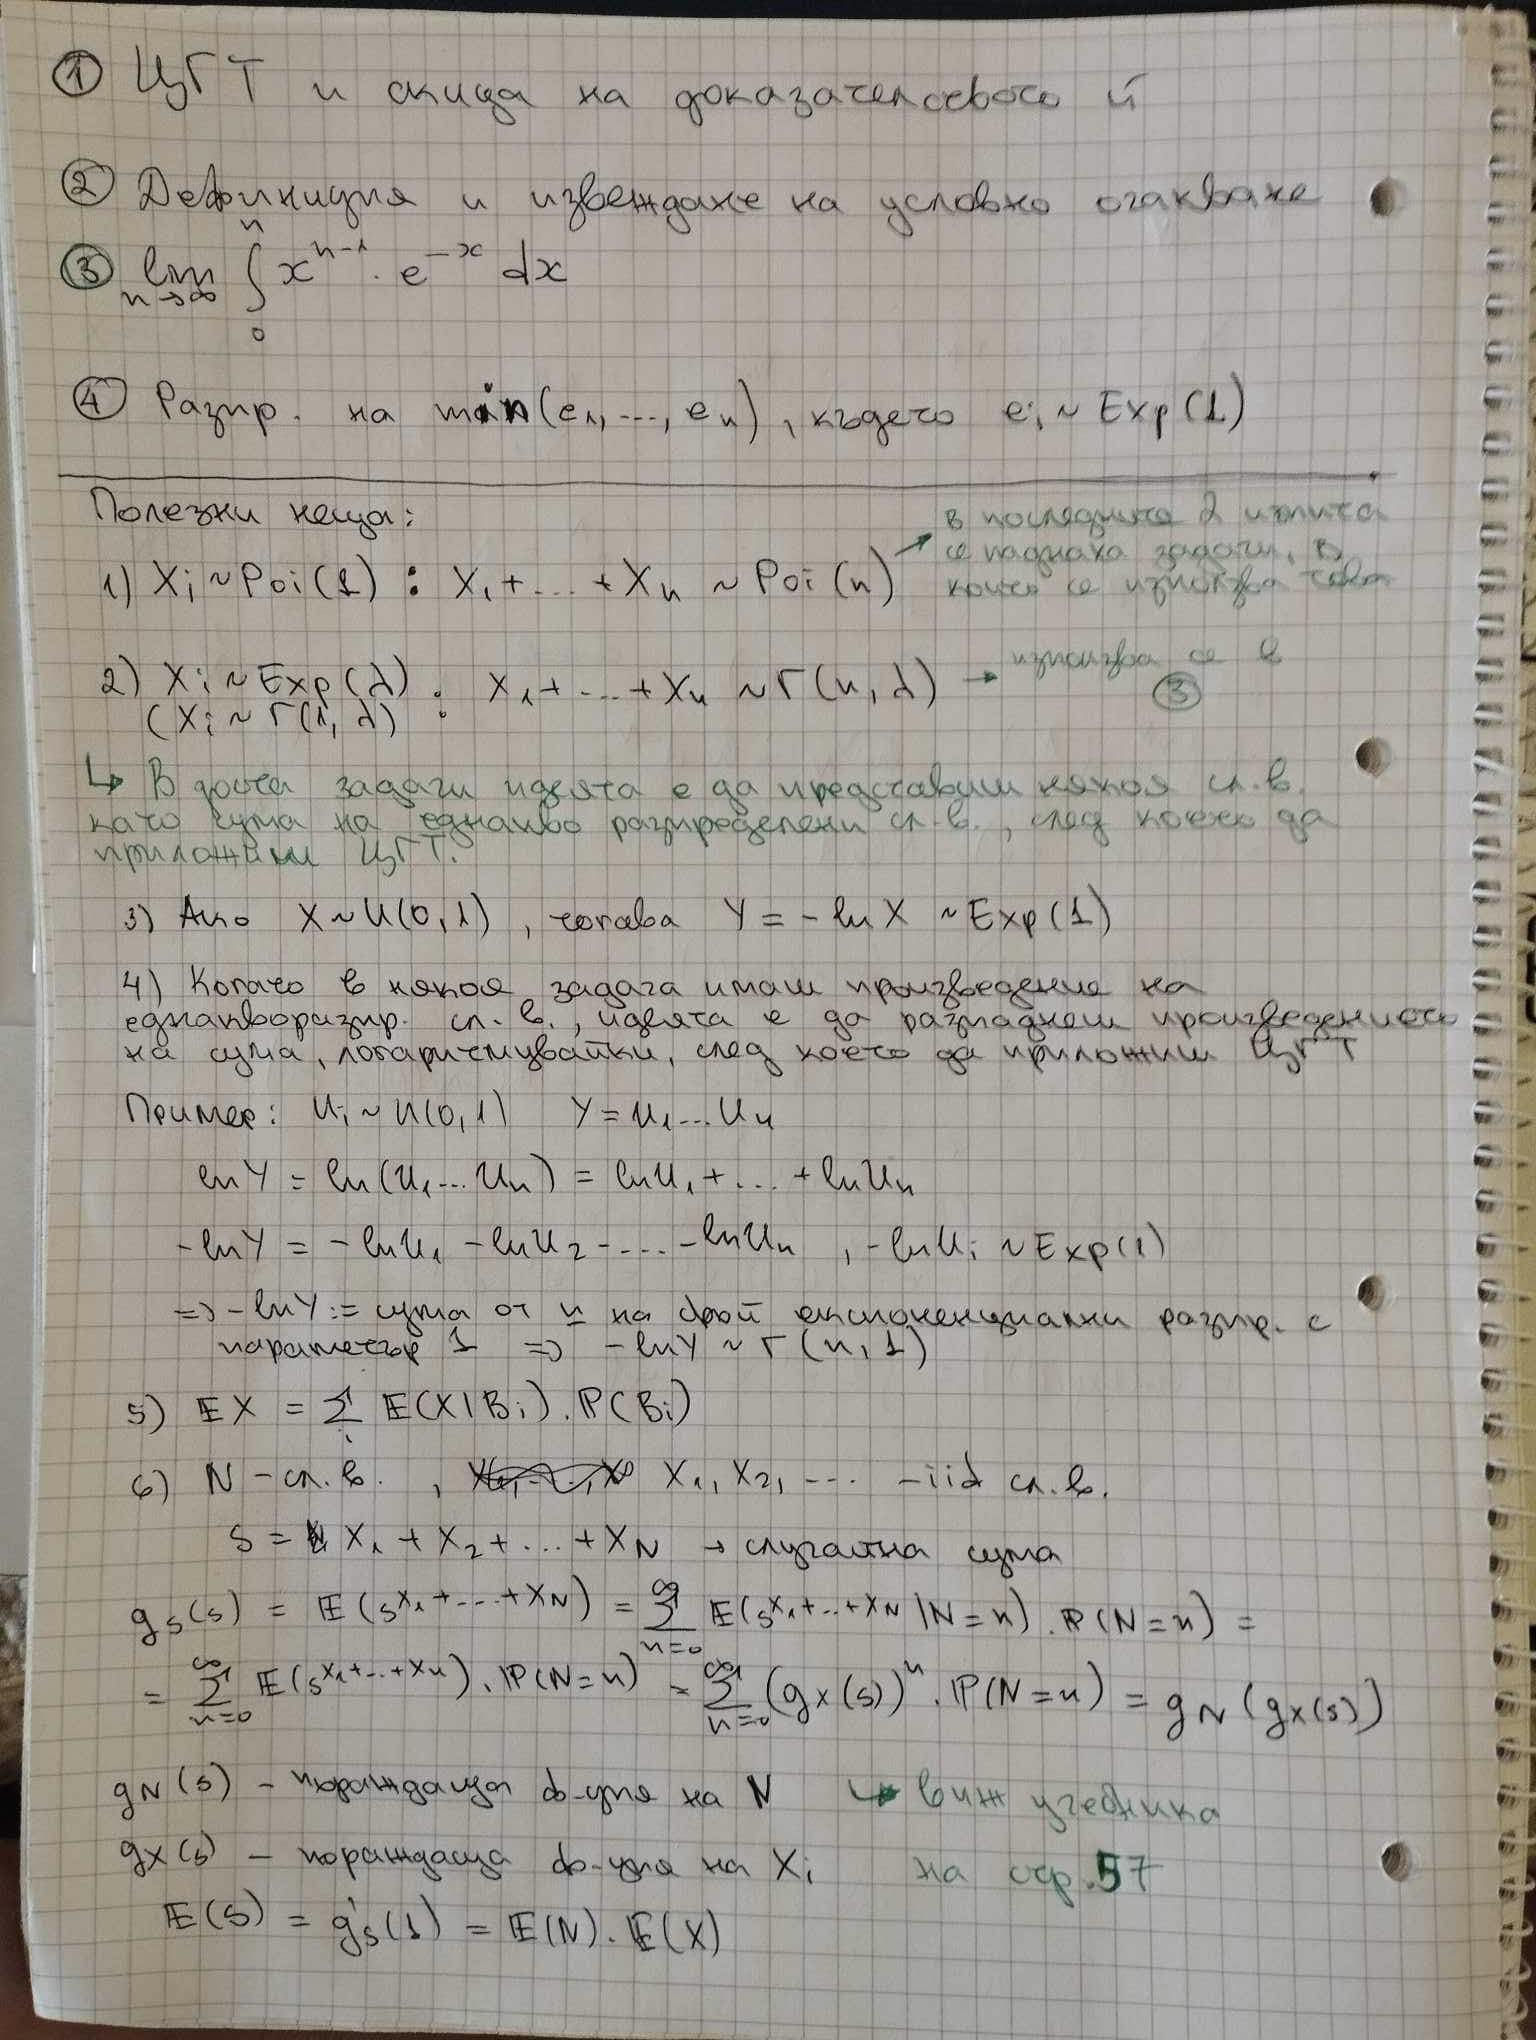 ① ЦГТ и скица на доказателството й
② Дефиниция и извеждане на условно очакване
③ lim n→∞ ∫₀ⁿ xⁿ⁻¹ . e⁻ˣ dx
④ Разпр. на min(e₁, ..., eₙ), където eᵢ ~ Exp(1)
Полезни неща:
1) Xᵢ ~ Poi(1) : X₁ + ... + Xₙ ~ Poi(n)
→ в последните 2 изпита
се паднаха задачи, в
които се използва това
2) Xᵢ ~ Exp(λ) : X₁ + ... + Xₙ ~ Γ(n, λ) → използва се в
(Xᵢ ~ Γ(1, λ) ③
↳ В доста задачи идеята е да представим някоя сл. в.
като сума на еднакво разпределени сл. в., след което да
приложим ЦГТ.
3) Ако X ~ U(0,1), тогава Y = -ln X ~ Exp(1)
4) Когато в някоя задача имаш произведение на
еднакворазпр. сл. в., идеята е да разпаднеш произведението
на сума, логаритмувайки, след което да приложиш ЦГТ
Пример: Uᵢ ~ U(0,1) Y = U₁...Uₙ
lnY = ln(U₁...Uₙ) = lnU₁ + ... + lnUₙ
-lnY = -lnU₁ -lnU₂ - ... -lnUₙ , -lnUᵢ ~ Exp(1)
=> -lnY := сума от n на брой експоненциални разпр. с
параметър 1 => -lnY ~ Γ(n,1)
5) 𝔼X = Σᵢ 𝔼(X|Bᵢ).ℙ(Bᵢ)
6) N - сл. в. , X₁, X₂, ... - iid сл. в.
S = X₁ + X₂ + ... + X_N → случайна сума
g_S(s) = 𝔼(s^(X₁+...+X_N)) = Σ_{n=0}^∞ 𝔼(s^(X₁+...+X_N) | N=n).ℙ(N=n) =
= Σ_{n=0}^∞ 𝔼(s^(X₁+...+Xₙ)).ℙ(N=n) = Σ_{n=0}^∞ (g_X(s))ⁿ.ℙ(N=n) = g_N(g_X(s))
g_N(s) - пораждаща ф-ция на N ↳ виж учебника
g_X(s) - пораждаща ф-ция на Xᵢ на стр. 57
𝔼(S) = g'_S(1) = 𝔼(N).𝔼(X)